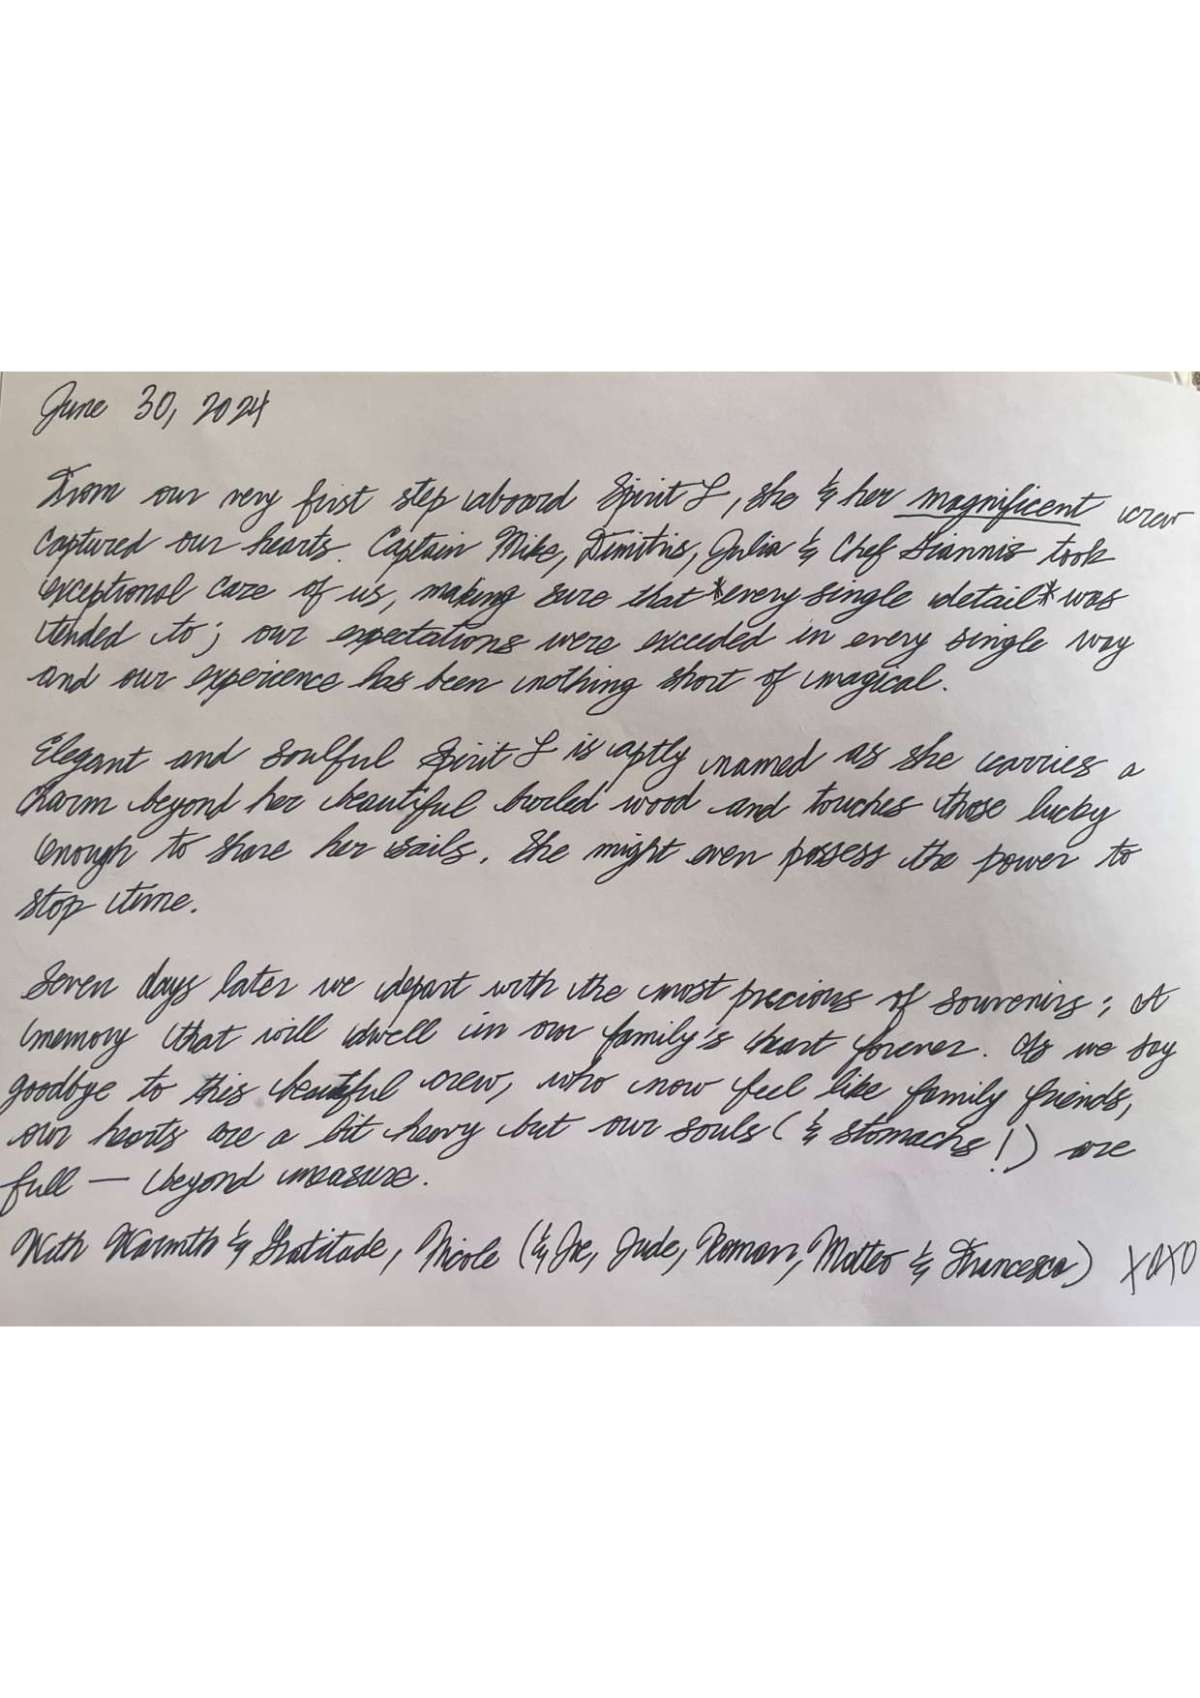 June 30, 2024
From our very first step aboard Spirit L, she & her magnificent crew
captured our hearts. Captain Mike, Dimitris, Julia & Chef Giannis took
exceptional care of us, making sure that *every single detail* was
tended to; our expectations were exceeded in every single way
and our experience has been nothing short of magical.
Elegant and soulful Spirit L is aptly named as she carries a
charm beyond her beautiful burled wood and touches those lucky
enough to share her sails. She might even possess the power to
stop time.
Seven days later we depart with the most precious of souvenirs; A
memory that will dwell in our family's heart forever. As we say
goodbye to this beautiful crew, who now feel like family friends,
our hearts are a bit heavy but our souls (& stomachs!) are
full — beyond measure.
With Warmth & Gratitude, Nicole (& Joe, Jude, Roman, Matteo & Francesca) xoxo